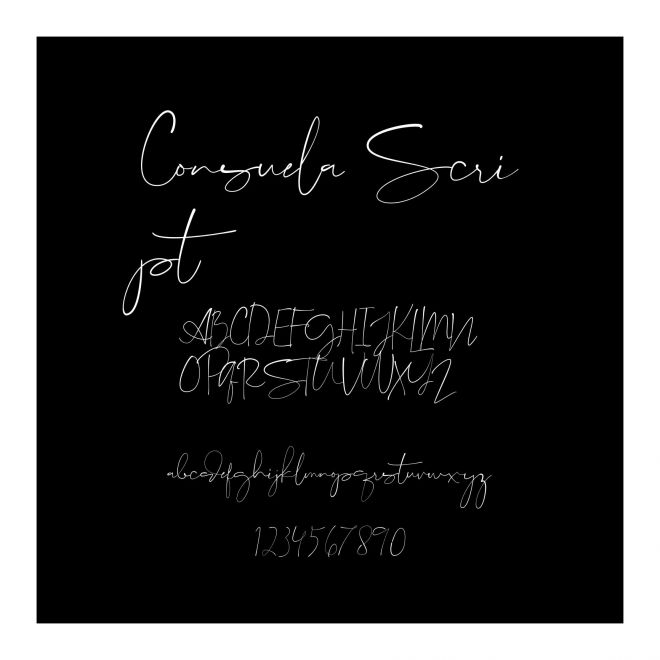 Consuela Scri
pt
ABCDEFGHIJKLMN
OPqRSTUVWXYZ
abcdefghijklmnopqrstuvwxyz
1234567890